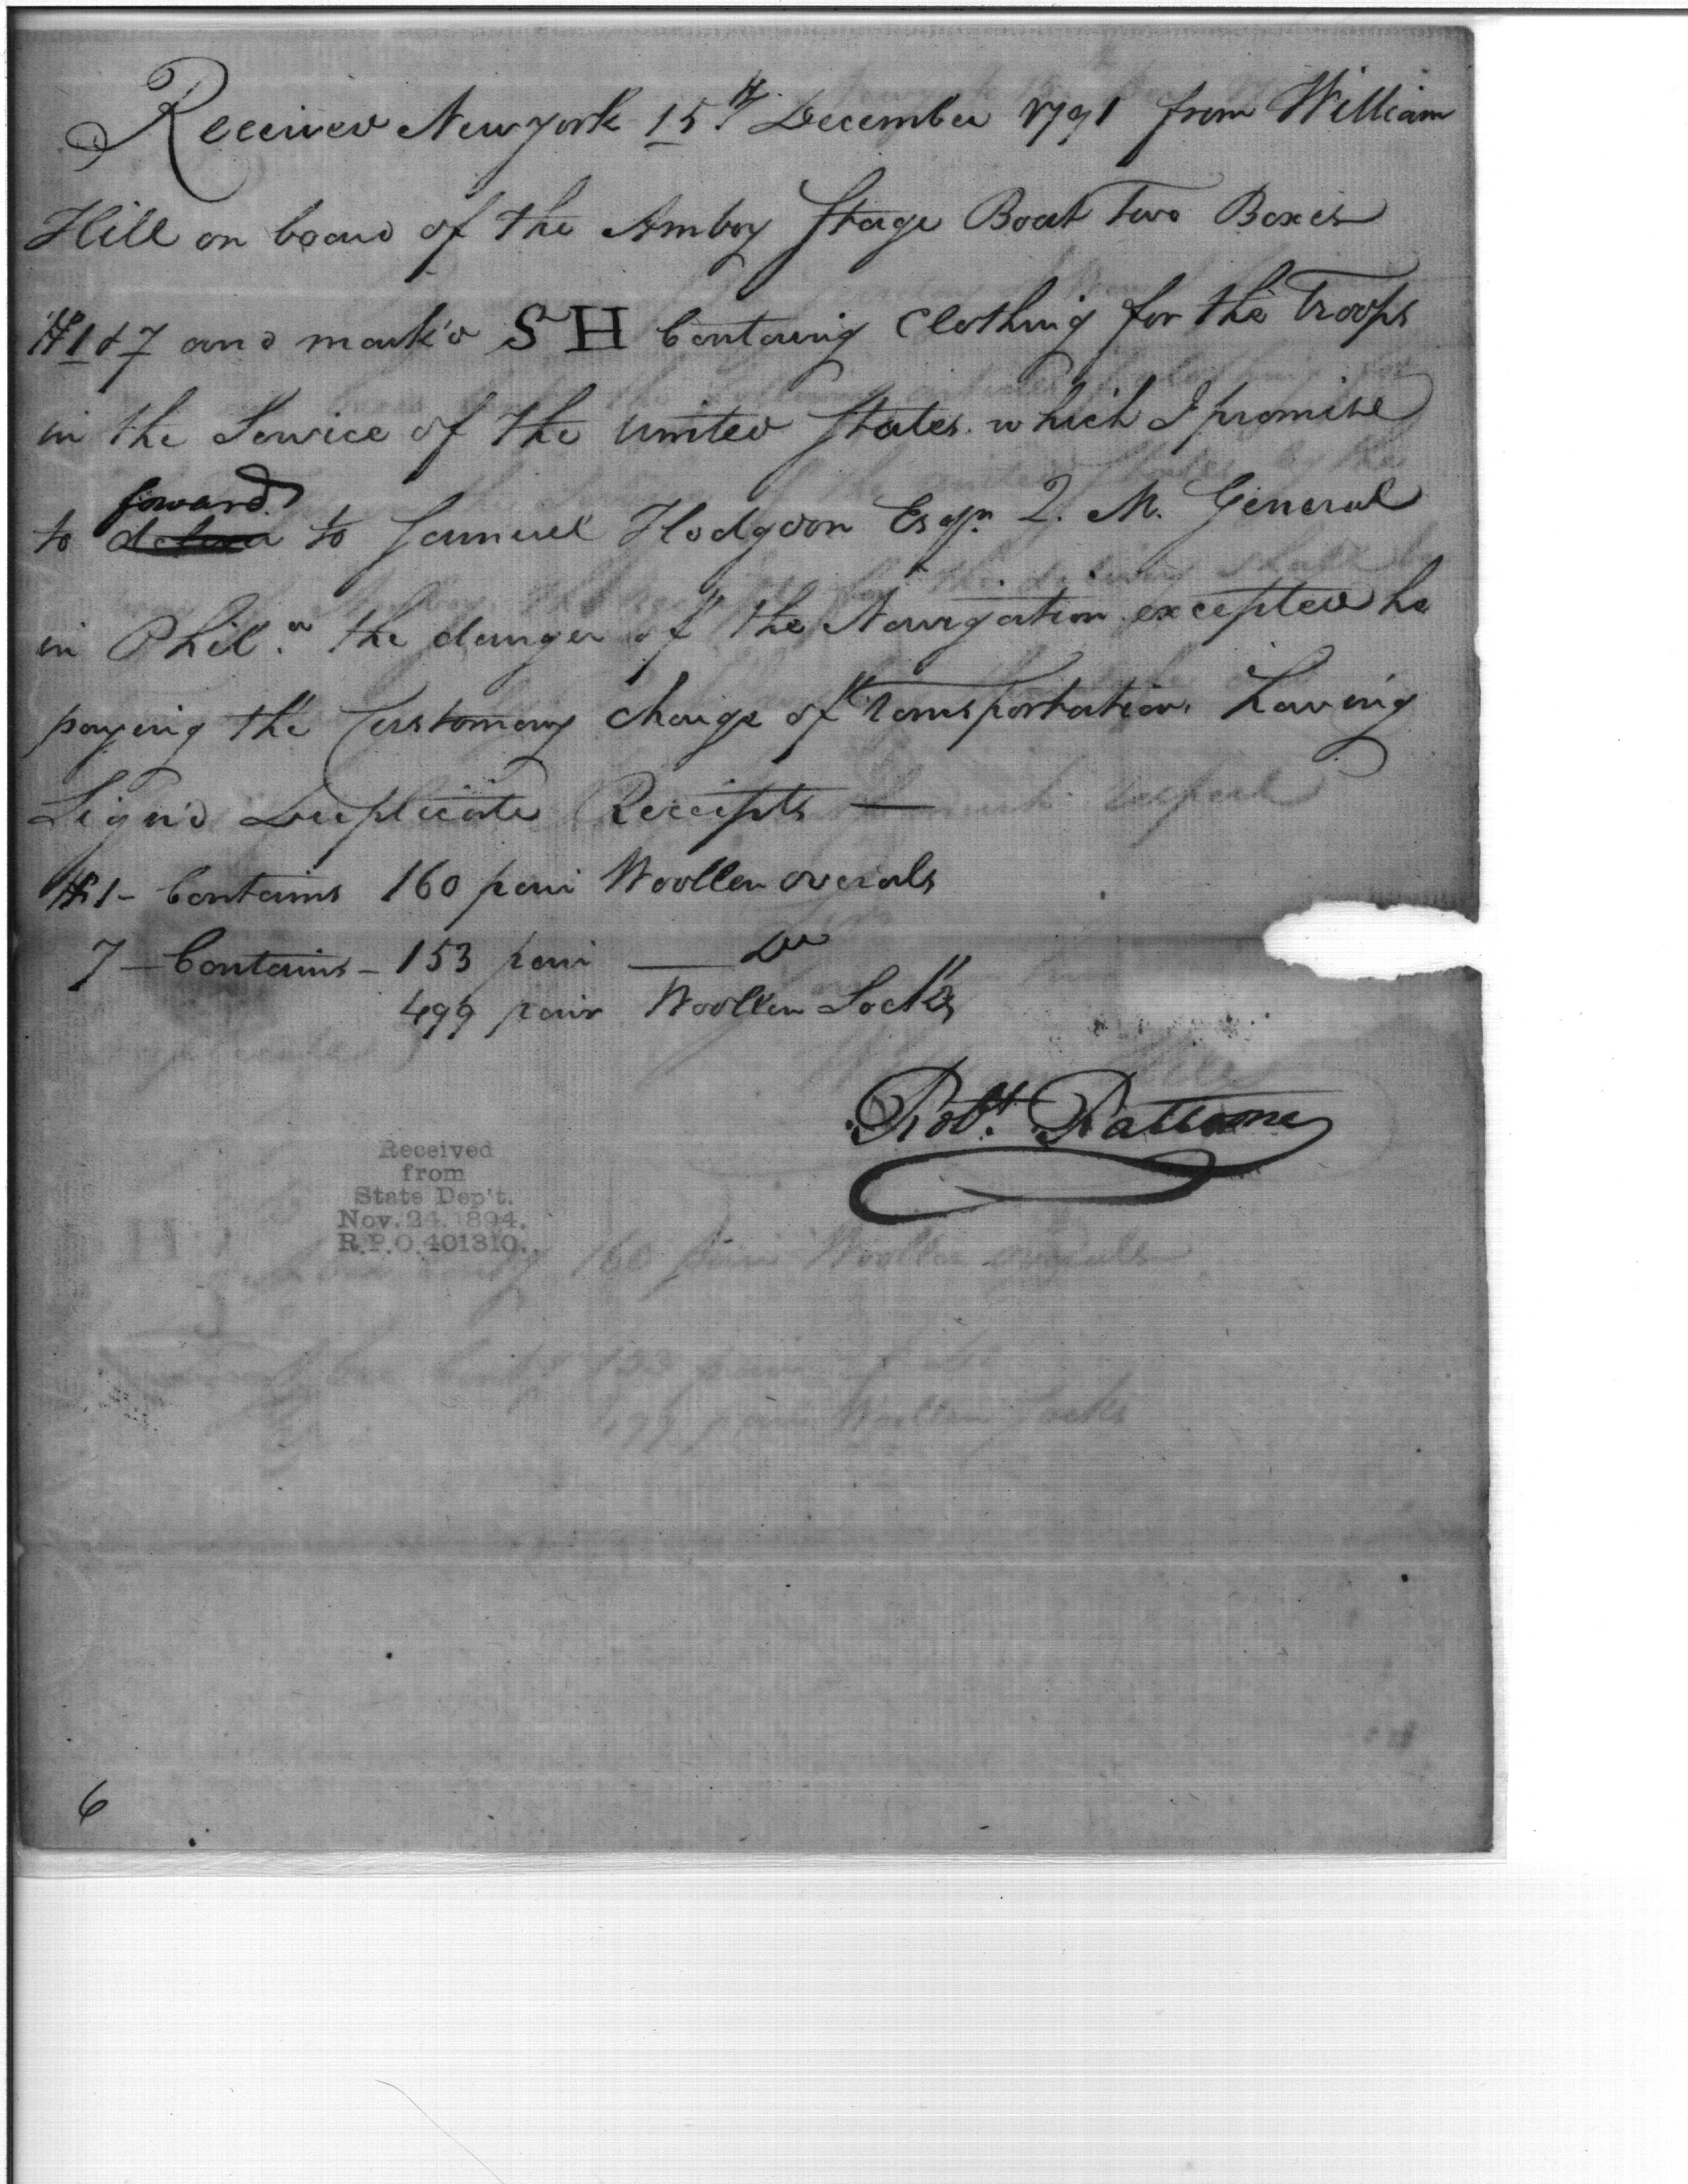 Received New york 15th December 1791 from William
Hill on board of the Amboy Stage Boat Two Boxes
No 1 & 7 and mark'd SH Containing Clothing for the Troops
in the Service of the united States which I promise
forward
to deliver to Samuel Hodgdon Esqr Q. M. General
in Phila. the danger of the Navigation excepted he
paying the Customary charge of transportation. having
Sign'd Duplicate Receipts —
No 1 - Contains 160 pair Woollen overals
7 - Contains - 153 pair — Do
499 pair Woollen Socks
Robt. Pattone
Received
from
State Dep't.
Nov. 24. 1894.
R.P.O. 401310.
160 pair Woollen overals
153 pair
499 pair Woollen Socks
6